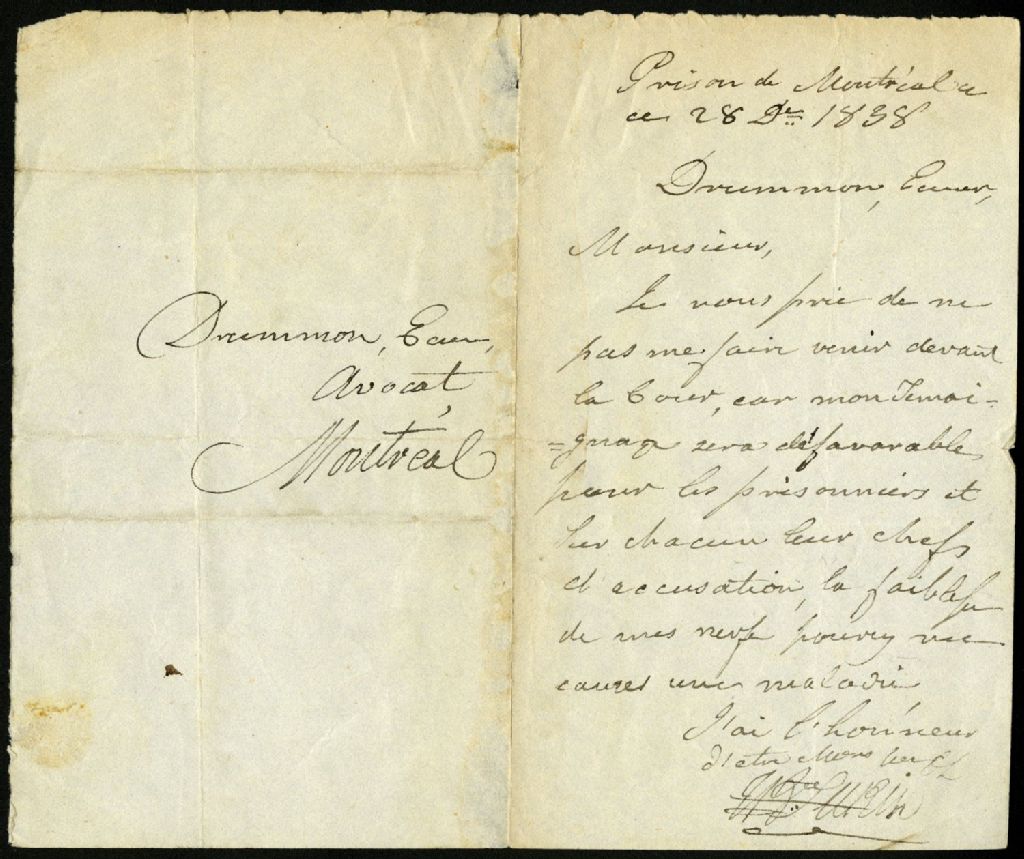 Drummon, Ecuer,
Avocat,
Montréal
Prison de Montréal ce
ce 28 Dre 1838
Drummon, Ecuer,
Monsieur,
Je vous prie de ne
pas me fair venir devant
la Cour, car mon Temoi=
=gnage sera défavorable
pour les prisonniers et
Sur chacun leur chefs
d accusation, la faiblesse
de mes nerfs pourez me
causer une maladie
J'ai l'honneur
d'etre Mons